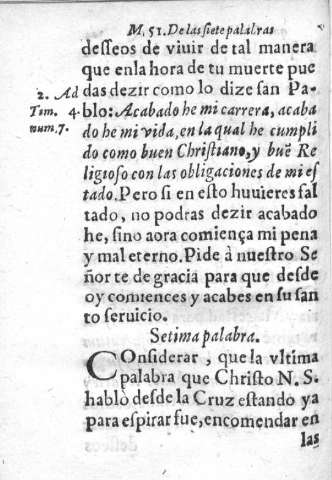 M, 51. De las siete palabras
desseos de viuir de tal manera
que enla hora de tu muerte pue
das dezir como lo dize san Pa-
blo: Acabado he mi carrera, acaba
do he mi vida, en la qual he cumpli
do como buen Christiano, y buẽ Re
ligioso con las obligaciones de mi es
tado. Pero si en esto huuieres fal
tado, no podras dezir acabado
he, sino aora comiença mi pena
y mal eterno. Pide à nuestro Se
ñor te de gracia para que desde
oy comiences y acabes en su san
to seruicio.
2. Ad
Tim. 4.
num. 7.
Setima palabra.
COnsiderar, que la vltima
palabra que Christo N. S.
hablò desde la Cruz estando ya
para espirar fue, encomendar en
las